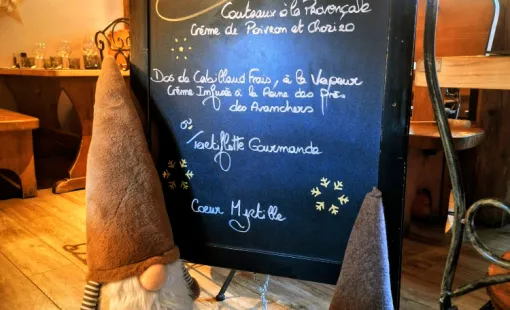 Couteaux à la Provençale
Crème de Poivron et Chorizo
Dos de Cabillaud Frais, à la Vapeur
Crème Infusée à la Reine des Prés
des Avanchers
Tartiflette Gourmande
Coeur Myrtille